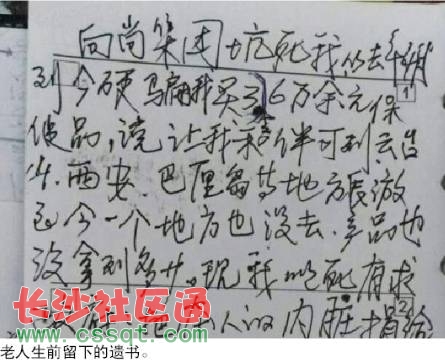 向尚集团坑死我的去年9月
到今硬骗我买了6万余元保 1
健品,说让我和伴可到五台
山.西安.巴厘岛等地方旅游
至今一个地方也没去.产品也
没拿到多少.现我以死有求
人的内脏捐给 2
长沙社区通
www.cssqt.com
老人生前留下的遗书。